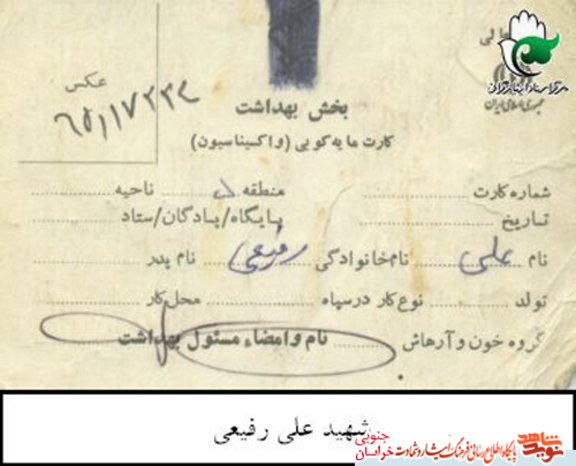 عالی
جمهوری اسلامی ایران
مرکز اسناد ایثارگران
عکس
بخش بهداشت
کارت مایه کوبی (واکسیناسیون)
شماره کارت منطقه ناحیه
تاریخ پایگاه/پادگان/ستاد
نام علی نام خانوادگی رفیعی نام پدر
تولد نوع کار در سپاه محل کار
گروه خون و آرهاش نام و امضاء مسئول بهداشت
شهید علی رفیعی
نوید شاهد پایگاه اطلاع رسانی فرهنگ ایثار و شهادت
خراسان جنوبی